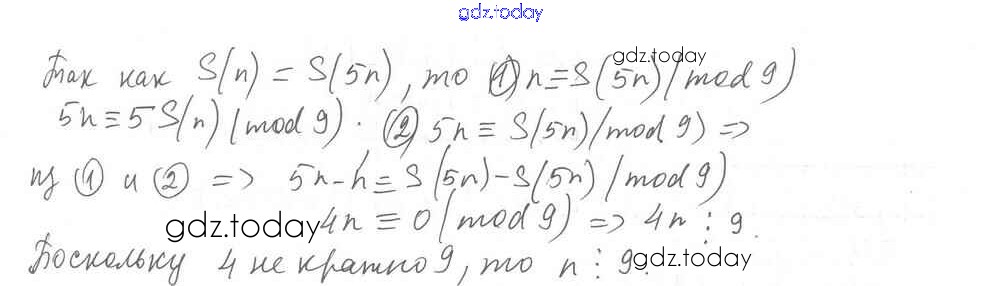 gdz.today
Так как S(n) = S(5n), то ① n ≡ S(5n) (mod 9)
gdz.today
5n ≡ 5S(n) (mod 9). ② 5n ≡ S(5n) (mod 9) =>
из ① и ② => 5n - n ≡ S(5n) - S(5n) (mod 9)
gdz.today 4n ≡ 0 (mod 9) => 4n ⋮ 9.
Поскольку 4 не кратно 9, то n ⋮ 9.
gdz.today